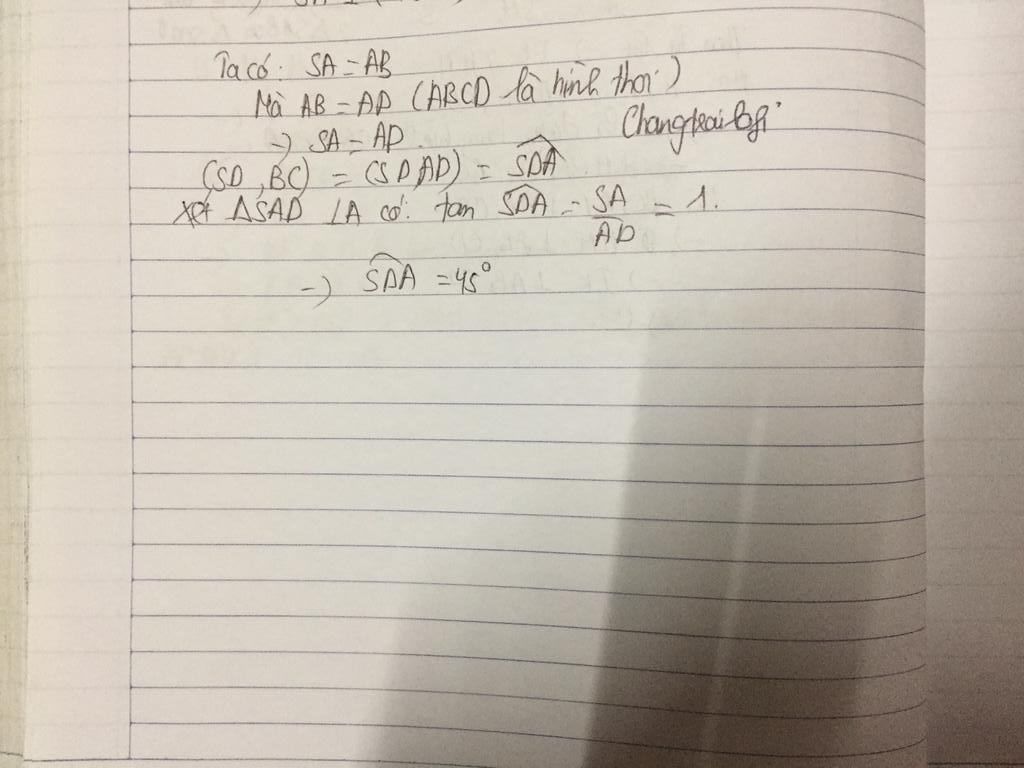 Ta có: SA = AB
Mà AB = AD (ABCD là hình thoi)
→ SA = AD.
Changtraibagi
(SD, BC) = (SD, AD) = \widehat{SDA}
xét ΔSAD ⊥A có: tan \widehat{SDA} = \frac{SA}{AD} = 1.
→ \widehat{SDA} = 45°